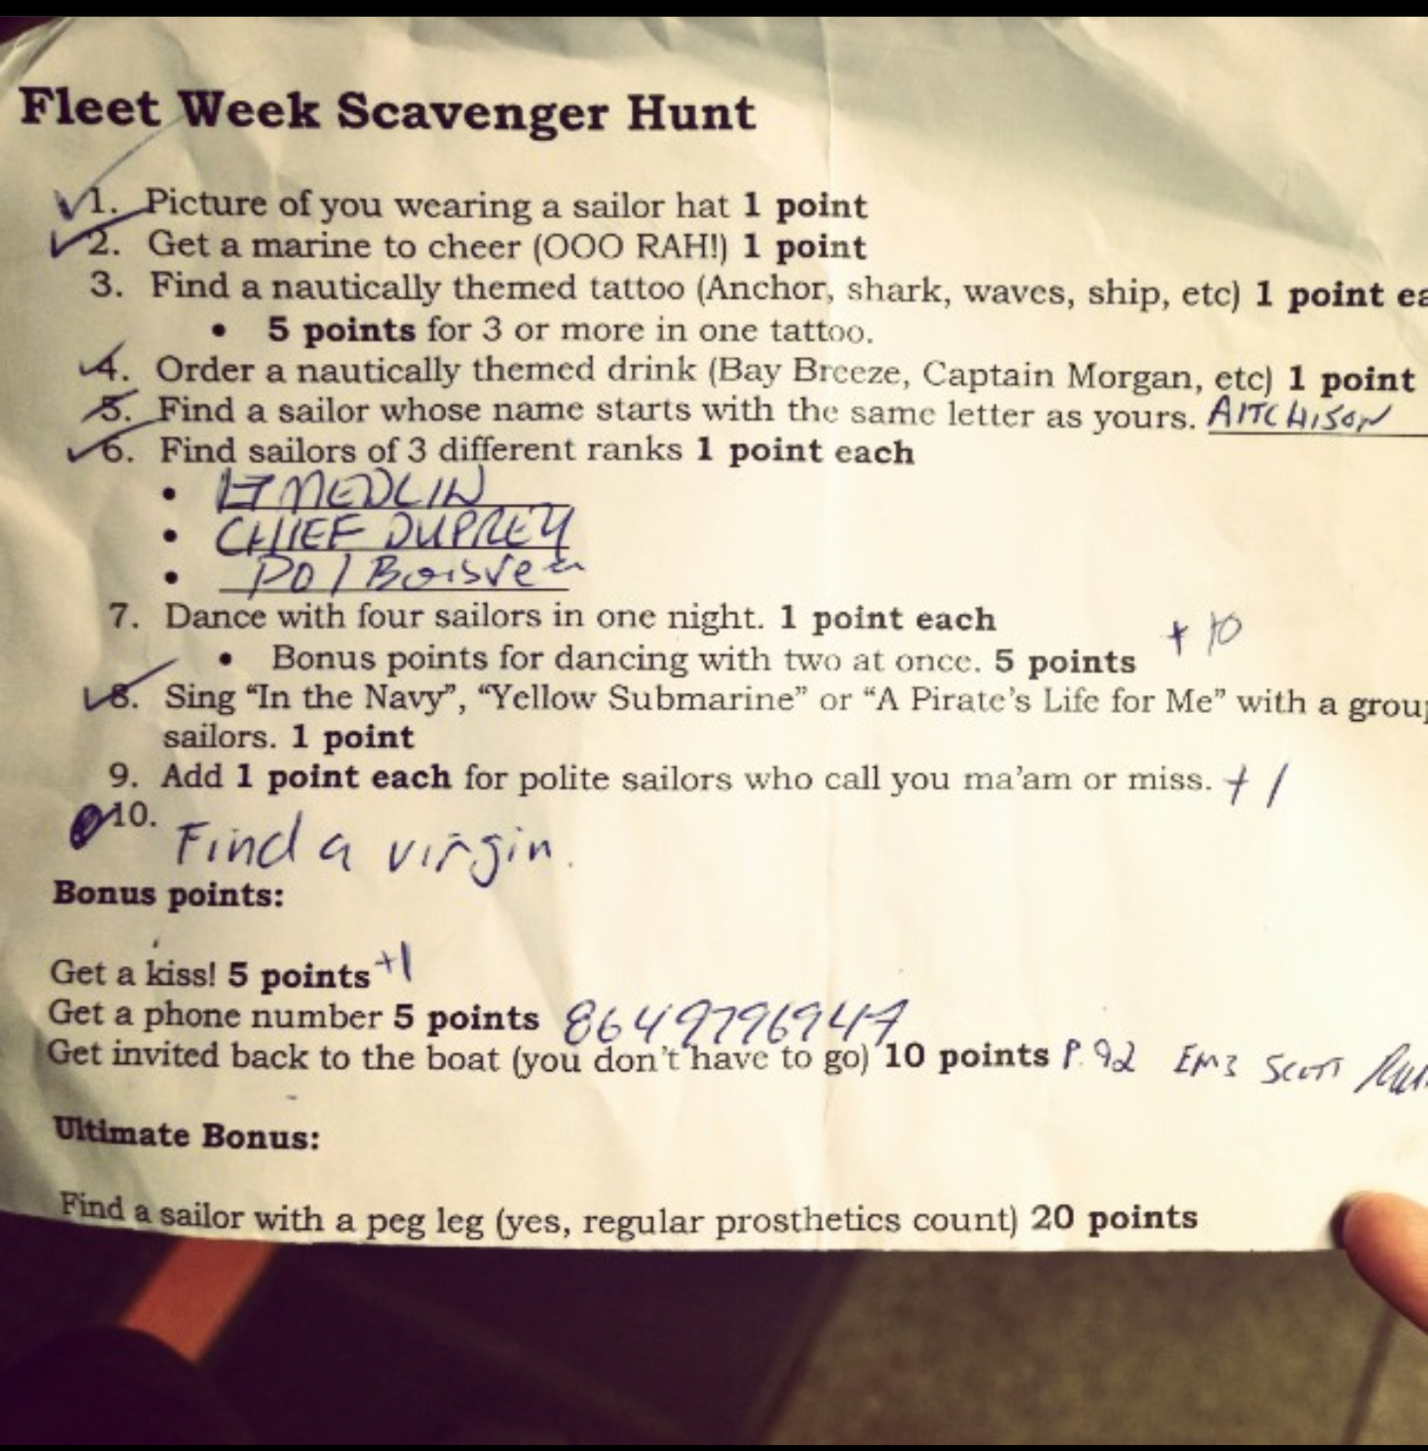 Fleet Week Scavenger Hunt
1. Picture of you wearing a sailor hat 1 point
2. Get a marine to cheer (OOO RAH!) 1 point
3. Find a nautically themed tattoo (Anchor, shark, waves, ship, etc) 1 point
• 5 points for 3 or more in one tattoo.
4. Order a nautically themed drink (Bay Breeze, Captain Morgan, etc) 1 point
5. Find a sailor whose name starts with the same letter as yours. AITCHISON
6. Find sailors of 3 different ranks 1 point each
• LT MEDLIN
• CHIEF DUPREY
• PO1
7. Dance with four sailors in one night. 1 point each
• Bonus points for dancing with two at once. 5 points +10
8. Sing “In the Navy”, “Yellow Submarine” or “A Pirate’s Life for Me” with a
sailors. 1 point
9. Add 1 point each for polite sailors who call you ma’am or miss. +1
10. Find a virgin.
Bonus points:
Get a kiss! 5 points +1
Get a phone number 5 points 8649796947
Get invited back to the boat (you don’t have to go) 10 points P.92 EM3 SCOTT
Ultimate Bonus:
Find a sailor with a peg leg (yes, regular prosthetics count) 20 points